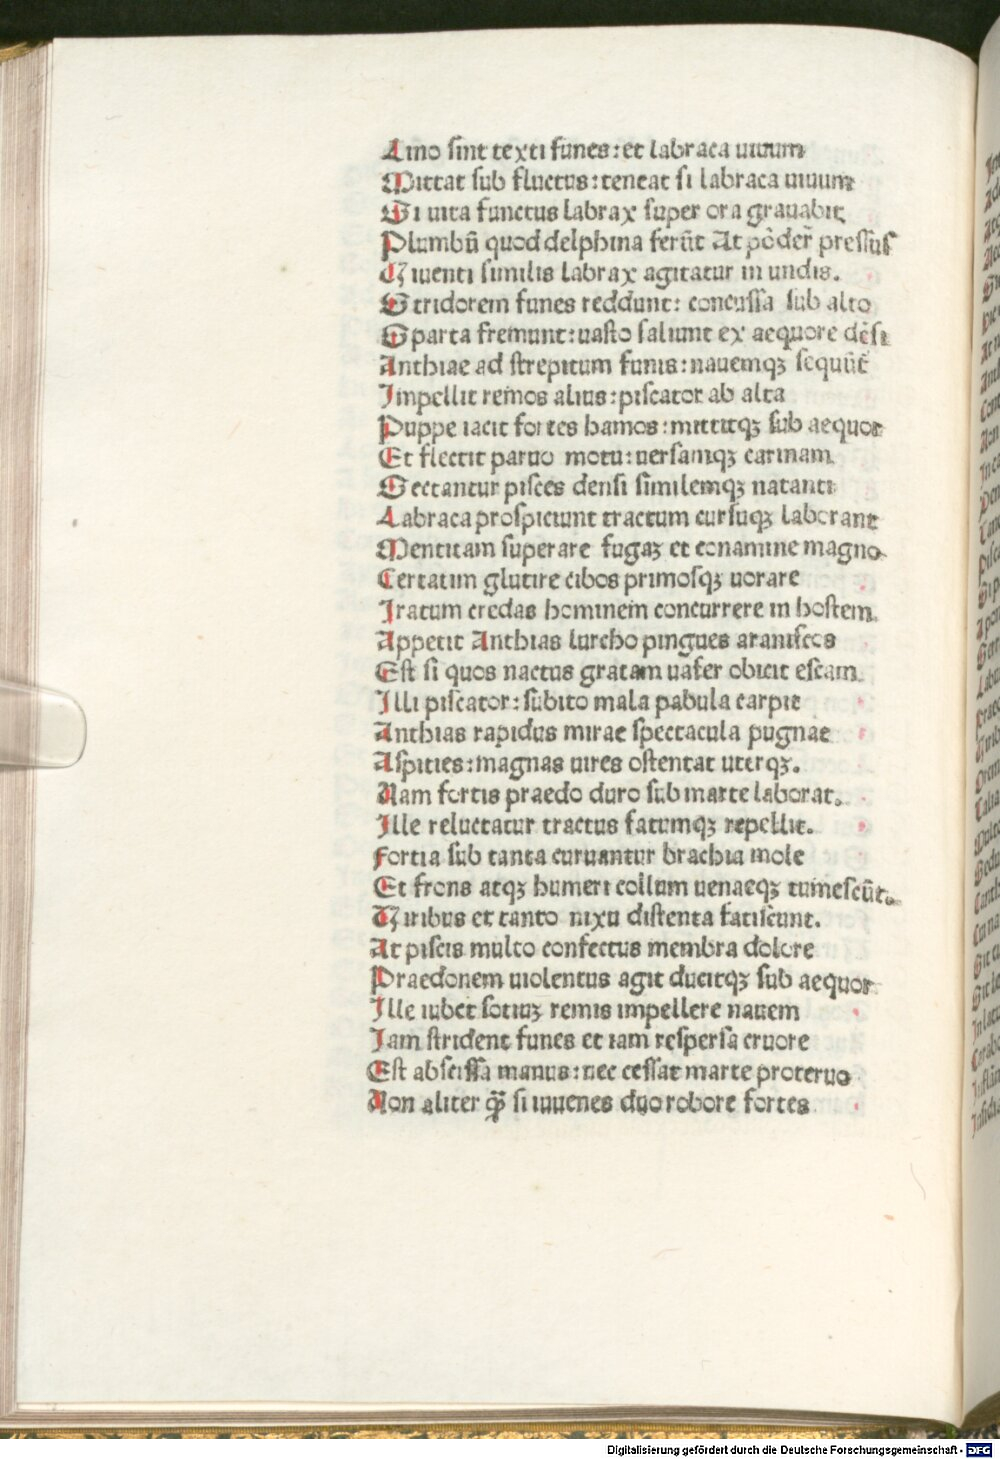 Lino sint texti funes: et labraca uiuum
Mittat sub fluctus: teneat si labraca uiuum
Si uita functus labrax super ora grauabit
Plumbū quod delphina ferūt At põder̃ pressus
Viuenti similis labrax agitatur in undis.
Stridorem funes reddunt: concussa sub alto
Sparta fremunt: uasto saliunt ex aequore dēsi
Anthiae ad strepitum funis: nauemqꝫ sequūt
Impellit remos alius: piscator ab alta
Puppe iacit fortes hamos: mittitqꝫ sub aequor
Et flectit paruo motu: uersamqꝫ carinam
Sectantur pisces densi similemqꝫ natanti
Labraca prospiciunt tractum cursuqꝫ laborant
Mentitam superare fugaꝫ et conamine magno
Certatim glutire cibos primosqꝫ uorare
Iratum credas hominem concurrere in hostem.
Appetit Anthias lurcho pingues aranisces
Est si quos nactus gratam uafer obicit escam.
Illi piscator: subito mala pabula carpit
Anthias rapidus mirae spectacula pugnae
Aspities: magnas uires ostentat uterqꝫ.
Nam fortis praedo duro sub marte laborat.
Ille reluctatur tractus fatumqꝫ repellit.
Fortia sub tanta curuantur brachia mole
Et frons atqꝫ humeri collum uenaeqꝫ tumescūt.
Viribus et tanto nixu distenta fatiscunt.
At piscis multo confectus membra dolore
Praedonem uiolentus agit ducitqꝫ sub aequor
Ille iubet sotiuꝫ remis impellere nauem
Iam strident funes et iam respersa cruore
Est abscissa manus: nec cessat marte proteruo
Non aliter q̃ȝ si iuuenes duo robore fortes
Digitalisierung gefördert durch die Deutsche Forschungsgemeinschaft - DFG